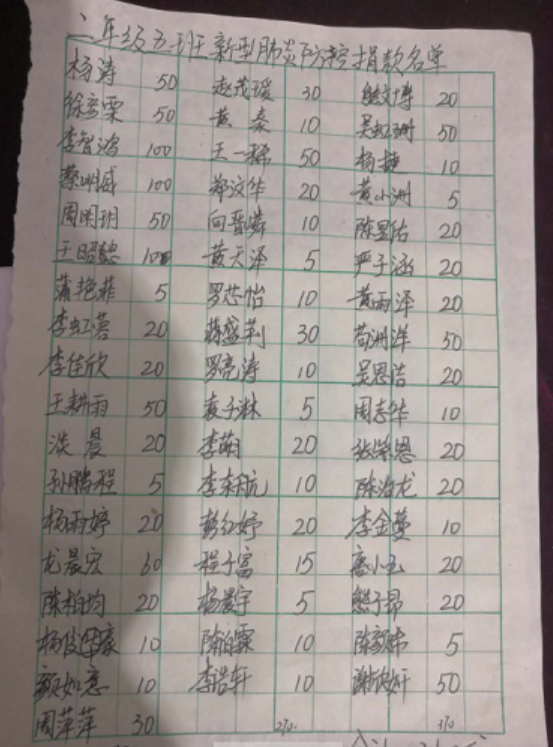 二年级五班新型肺炎防控捐款名单
杨涛 50 赵茂瑷 30 熊文博 20
徐彦栗 50 黄泰 10 吴虹珊 50
李智鸿 100 王一稀 50 杨捷 10
蔡明威 100 郑汶华 20 黄小洲 5
周明玥 50 向晋嶙 10 陈昱佑 20
王昭懿 100 黄天泽 5 严子涵 20
蒲艳菲 5 罗芯怡 10 黄雨泽 20
李虹蓉 20 蒋盛莉 30 苟洲洋 50
李佳欣 20 罗亮涛 10 吴思洁 20
王耕雨 50 袁子淋 5 周志华 10
淡晨 20 李萌 20 张荣恩 20
孙鹏程 5 李东航 10 陈治龙 20
杨雨婷 20 彭红婷 20 李金蔓 10
龙晨宏 60 程子富 15 唐小五 20
陈柏均 20 杨晨宇 5 熊子昂 20
杨俊豪 10 陈柏霖 10 陈毅炜 5
颜如意 10 李浩轩 10 谢欣妍 50
周萍萍 30 270 370